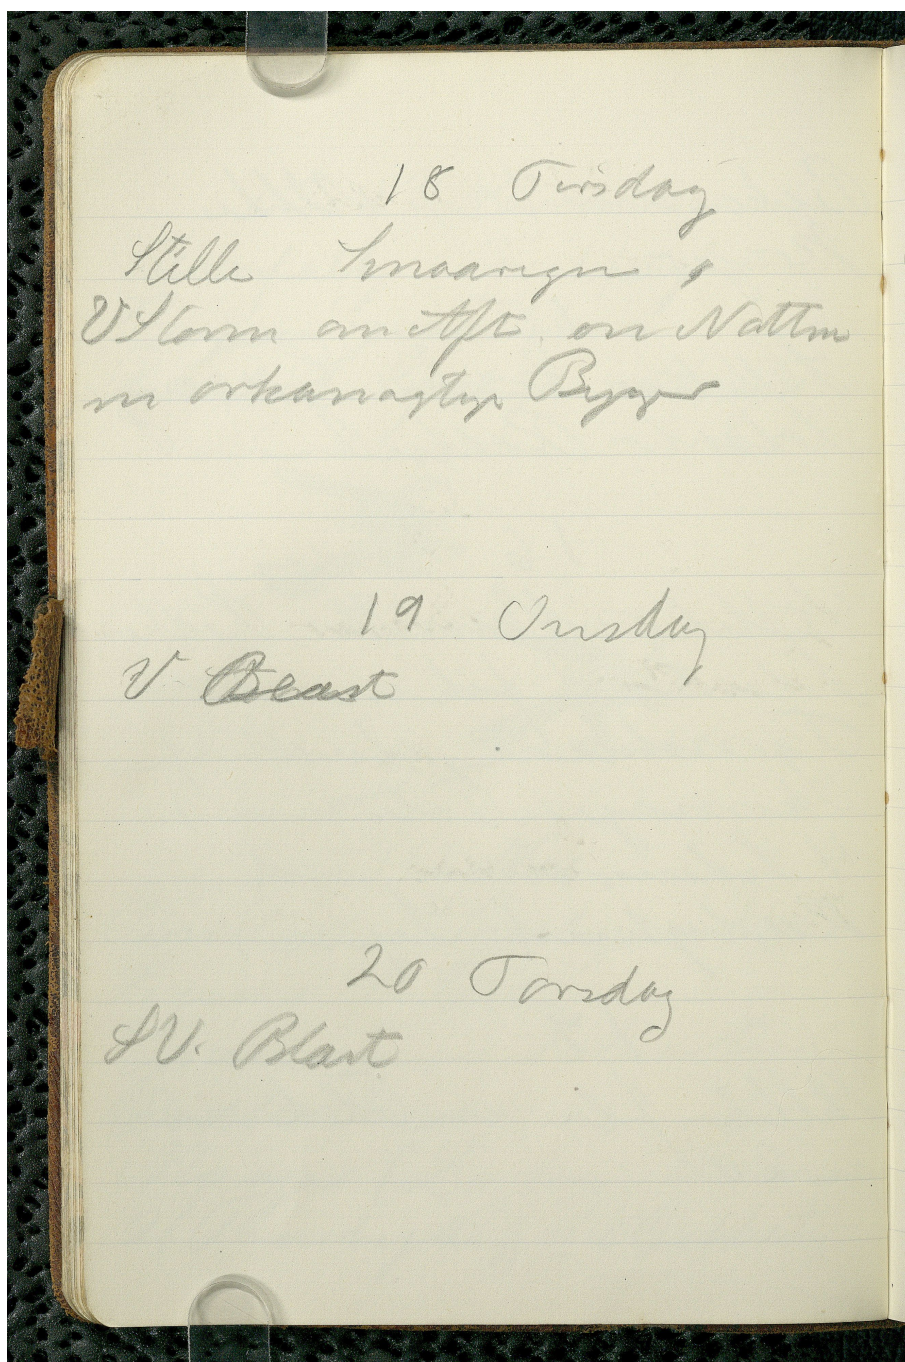 18 Tirsdag
Stille Smaaregn,
V Storm om Aft, om Natten
m orkanagtige Bygger
19 Onsdag
V Blæst
20 Torsdag
SV. Blæst